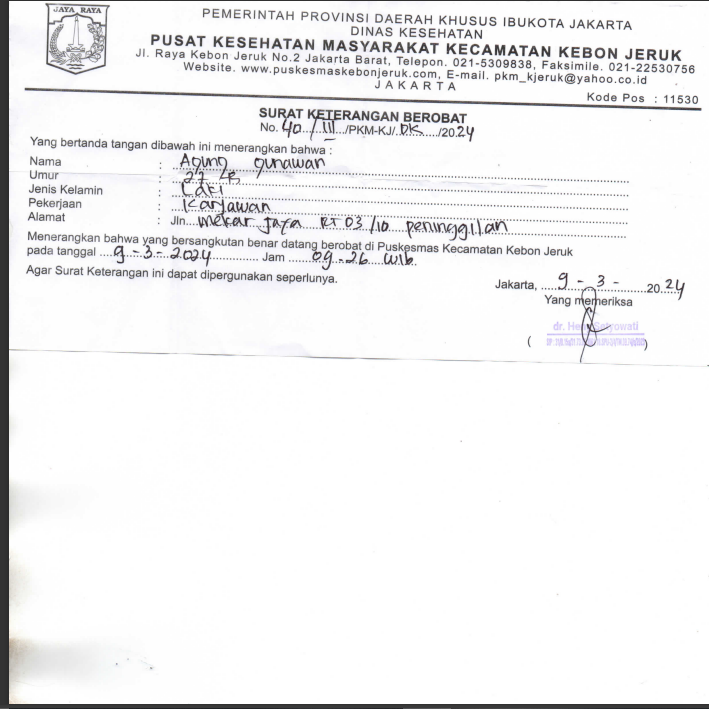 JAYA RAYA
PEMERINTAH PROVINSI DAERAH KHUSUS IBUKOTA JAKARTA
DINAS KESEHATAN
PUSAT KESEHATAN MASYARAKAT KECAMATAN KEBON JERUK
Jl. Raya Kebon Jeruk No.2 Jakarta Barat, Telepon. 021-5309838, Faksimile. 021-22530756
Website. www.puskesmaskebonjeruk.com, E-mail. pkm_kjeruk@yahoo.co.id
JAKARTA
Kode Pos : 11530
SURAT KETERANGAN BEROBAT
No. 40 / III /PKM-KJ/ DK /2024
Yang bertanda tangan dibawah ini menerangkan bahwa :
Nama : Agung gunawan
Umur : 27
Jenis Kelamin : Laki
Pekerjaan : Karyawan
Alamat : Jln. mekar jaya RT 03/10 peninggilan
Menerangkan bahwa yang bersangkutan benar datang berobat di Puskesmas Kecamatan Kebon Jeruk
pada tanggal 9-3-2024 Jam 09.26 wib
Agar Surat Keterangan ini dapat dipergunakan seperlunya.
Jakarta, 9 - 3 - 2024
Yang memeriksa
dr. Setyowati
( )